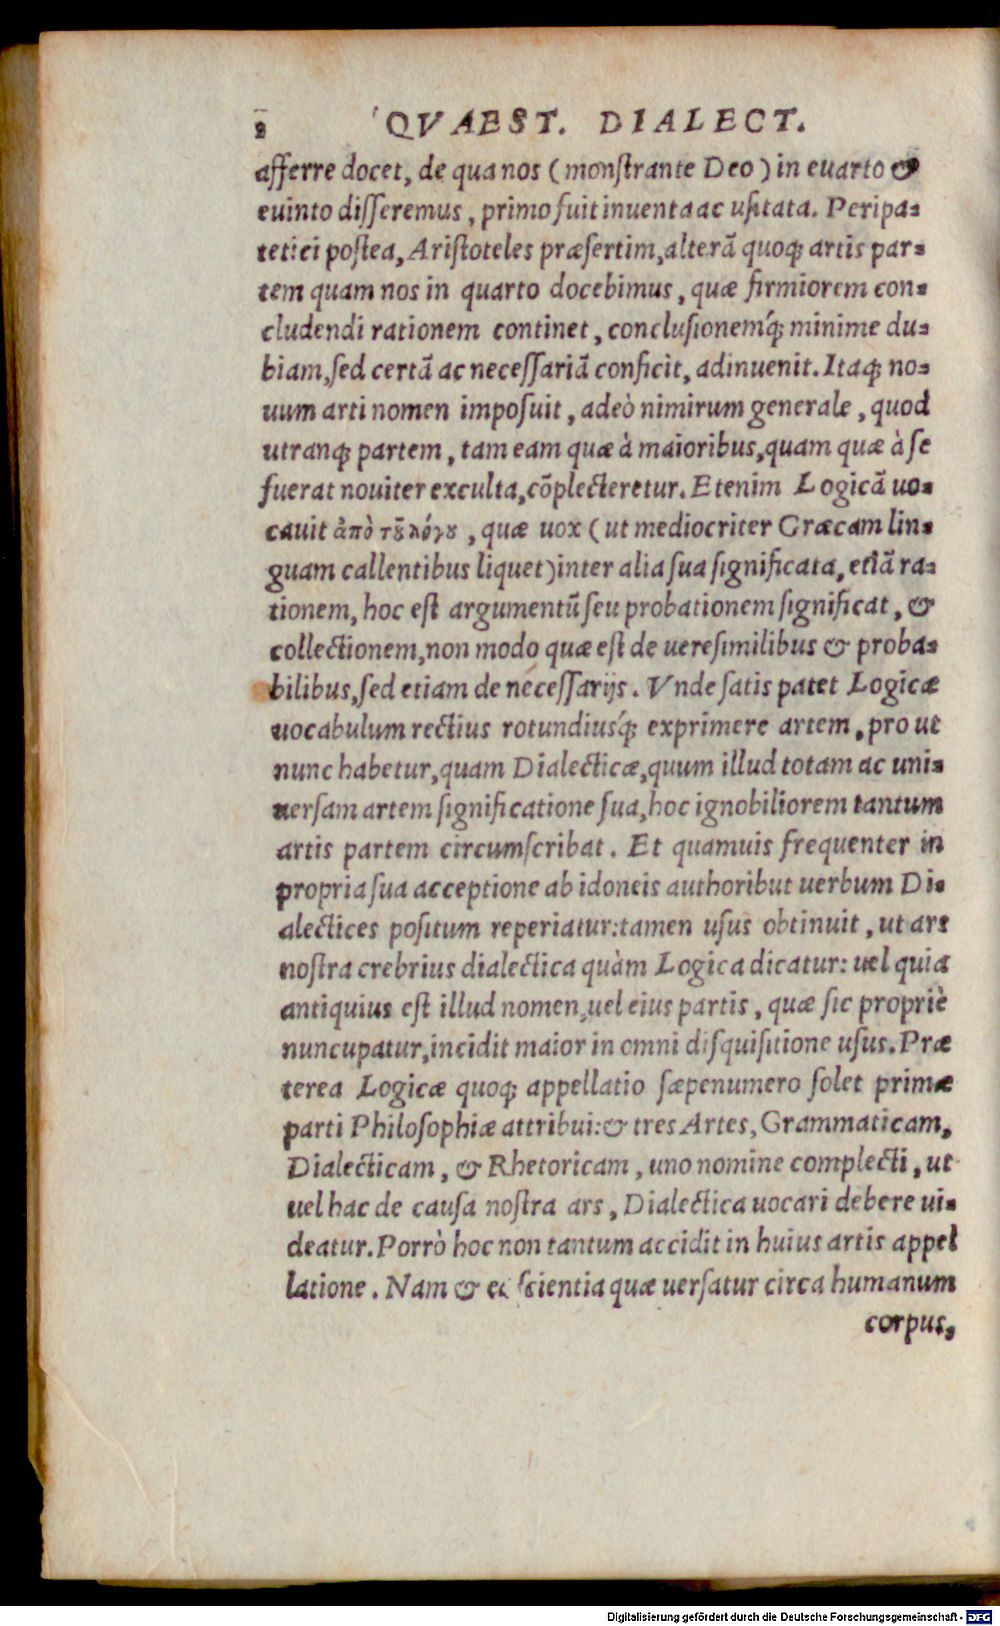 8 QVAEST. DIALECT.
afferre docet, de qua nos (monstrante Deo) in euarto &
euinto disseremus, primo fuit inuenta ac usitata. Peripa-
tetici postea, Aristoteles præsertim, alterā quoq; artis par-
tem quam nos in quarto docebimus, quæ firmiorem con-
cludendi rationem continet, conclusionemq́; minime du-
biam, sed certā ac necessariā conficit, adinuenit. Itaq; no-
uum arti nomen imposuit, adeò nimirum generale, quod
utranq; partem, tam eam quæ à maioribus, quam quæ à se
fuerat nouiter exculta, cōplecteretur. Etenim Logicā uo-
cauit ἀπὸ τȣ̃ λόγȣ, quæ uox (ut mediocriter Græcam lin-
guam callentibus liquet) inter alia sua significata, etiā ra-
tionem, hoc est argumentū seu probationem significat, &
collectionem, non modo quæ est de ueresimilibus & proba-
bilibus, sed etiam de necessarijs. Vnde satis patet Logicæ
uocabulum rectius rotundiusq́; exprimere artem, pro ut
nunc habetur, quam Dialecticæ, quum illud totam ac uni-
uersam artem significatione sua, hoc ignobiliorem tantum
artis partem circumscribat. Et quamuis frequenter in
propria sua acceptione ab idoneis authoribut uerbum Di-
alectices positum reperiatur: tamen usus obtinuit, ut ars
nostra crebrius dialectica quàm Logica dicatur: uel quia
antiquius est illud nomen, uel eius partis, quæ sic propriè
nuncupatur, incidit maior in omni disquisitione usus. Præ
terea Logicæ quoq; appellatio sæpenumero solet primæ
parti Philosophiæ attribui: & tres Artes, Grammaticam,
Dialecticam, & Rhetoricam, uno nomine complecti, ut
uel hac de causa nostra ars, Dialectica uocari debere ui-
deatur. Porrò hoc non tantum accidit in huius artis appel
latione. Nam & ea scientia quæ uersatur circa humanum
corpus,
Digitalisierung gefördert durch die Deutsche Forschungsgemeinschaft - DFG